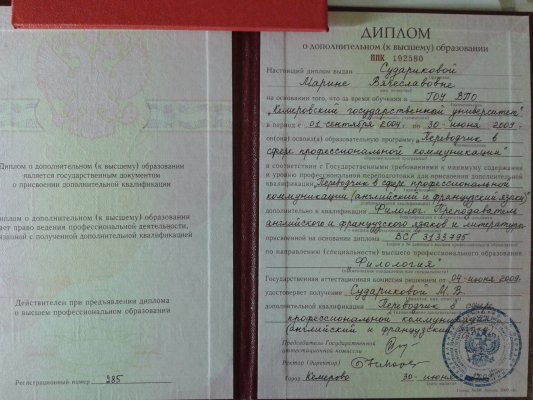 Диплом о дополнительном (к высшему) образовании
является государственным документом
о присвоении дополнительной квалификации
Диплом о дополнительном (к высшему) образовании
дает право ведения профессиональной деятельности,
связанной с полученной дополнительной квалификацией
Действителен при предъявлении диплома
о высшем профессиональном образовании
Регистрационный номер 285
ДИПЛОМ
о дополнительном (к высшему) образовании
ППК 192580
Настоящий диплом выдан Судариковой
Марине Вячеславовне
на основании того, что за время обучения в ГОУ ВПО
"Кемеровский государственный университет"
в период с 01 сентября 2004 по 30 июня 2009
он(а) освоил(а) образовательную программу "Переводчик в
сфере профессиональной коммуникации"
в соответствии с Государственными требованиями к минимуму содержания
и уровню профессиональной переподготовки для присвоения дополнительной
квалификации "Переводчик в сфере профессиональной
коммуникации (английский и французский языки)"
дополнительно к квалификации Филолог. Преподаватель
английского и французского языков и литературы
присвоенной на основании диплома ВСГ 3133795
по направлению (специальности) высшего профессионального образования
"Филология"
Государственная аттестационная комиссия решением от 04 июня 2009
удостоверяет получение Судариковой М. В.
дополнительной квалификации "Переводчик в сфере
профессиональной коммуникации
(английский и французский
Председатель Государственной
аттестационной комиссии
Ректор (директор)
Город Кемерово 30 июня